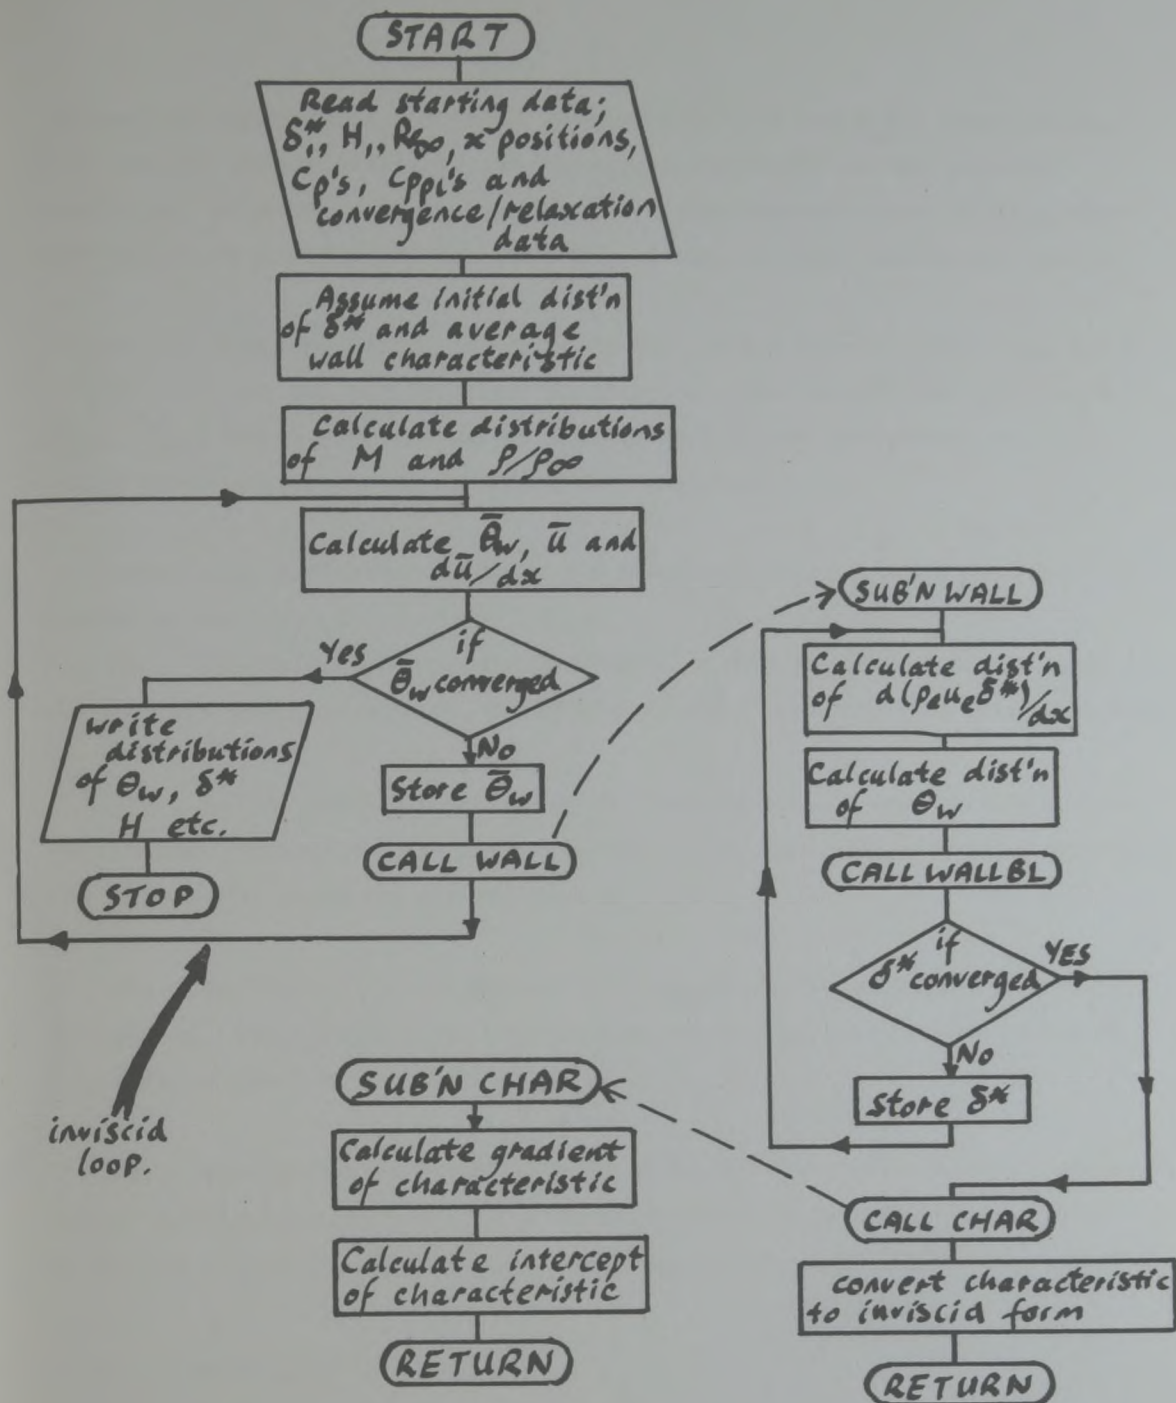 START
Read starting data;
δ*₁, H₁, Re∞, x positions,
Cp's, Cppl's and
convergence/relaxation
data
Assume initial dist'n
of δ* and average
wall characteristic
Calculate distributions
of M and ρ/ρ∞
Calculate θ̄w, ū and
dū/dx
if
θ̄w converged
YES
NO
write
distributions
of θw, δ*
H etc.
STOP
Store θ̄w
CALL WALL
inviscid
loop.
SUB'N WALL
Calculate dist'n
of d(ρeueδ*)/dx
Calculate dist'n
of θw
CALL WALLBL
if
δ* converged
YES
NO
Store δ*
CALL CHAR
convert characteristic
to inviscid form
RETURN
SUB'N CHAR
Calculate gradient
of characteristic
Calculate intercept
of characteristic
RETURN